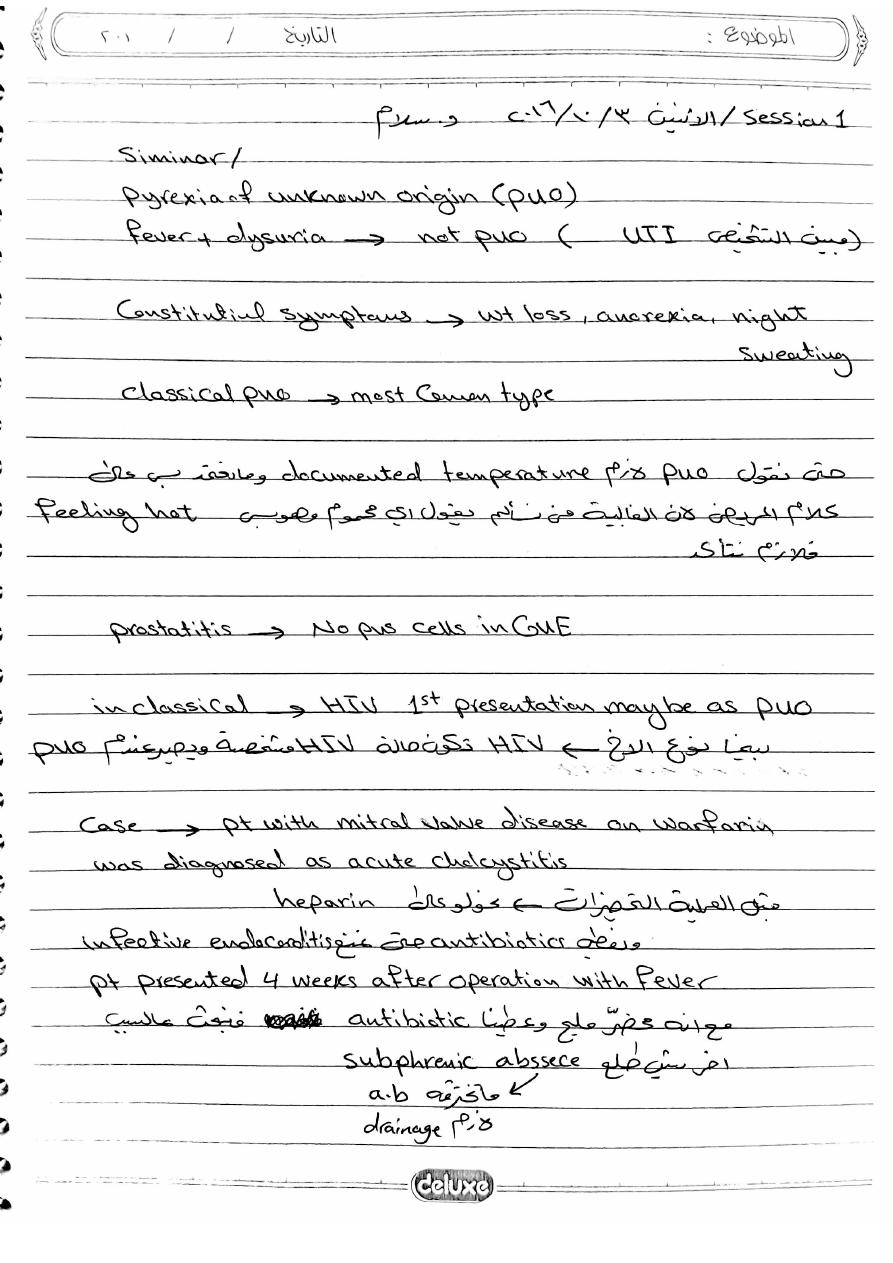 الموضوع : التاريخ / / ٢٠١
Session 1 / الاثنين ٢٠١٦/١٠/٣ د. سلام
Siminar /
Pyrexia of unknown origin (PUO)
fever + dysuria → not puo ( UTI مبين التشخيص)
Constitutinl symptoms → wt loss, anorexia, night
sweating
classical puo → most Comon type
حتى نقول PUO لازم documented temperature وما نعتمد بس على
كلام المريض لان الغالبية من نسألهم يقول اي محموم وهو بس feeling hot
فلازم نتأكد
prostatitis → No pus cells in GUE
in classical → HIV 1st presentation may be as PUO
بينما نوع الاخ ← HIV تكون حالة HIV مشخصة ويصير عندهم PUO
Case → pt with mitral valve disease on warfarin
was diagnosed as acute cholcystitis
قبل العملية التحضيرات ← نحولو على heparin
ونغطيه antibiotics حتى نمنع infective endocarditis
pt presented 4 weeks after operation with fever
مع انه محضر مليح وعطينا antibiotic فبحث عالسبب
اخر شي طلع subphrenic abssece
ما تخترقه a.b
لازم drainage
deluxe